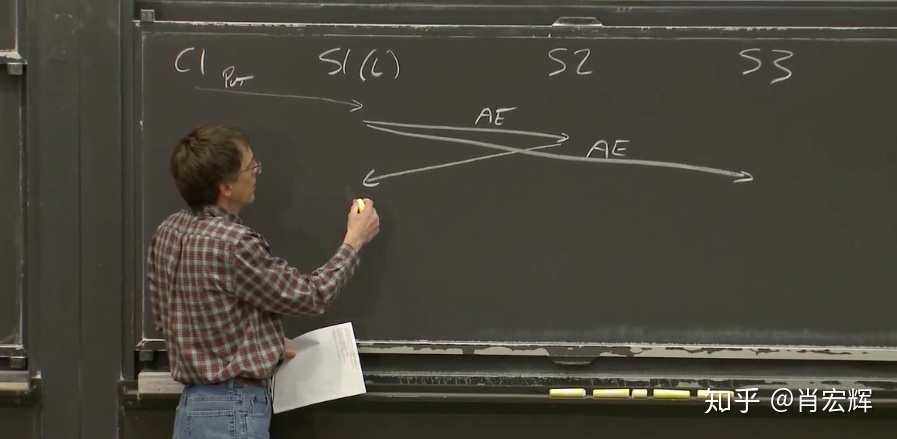 C1 S1(L) S2 S3
Put
AE
AE
知乎 @肖宏辉